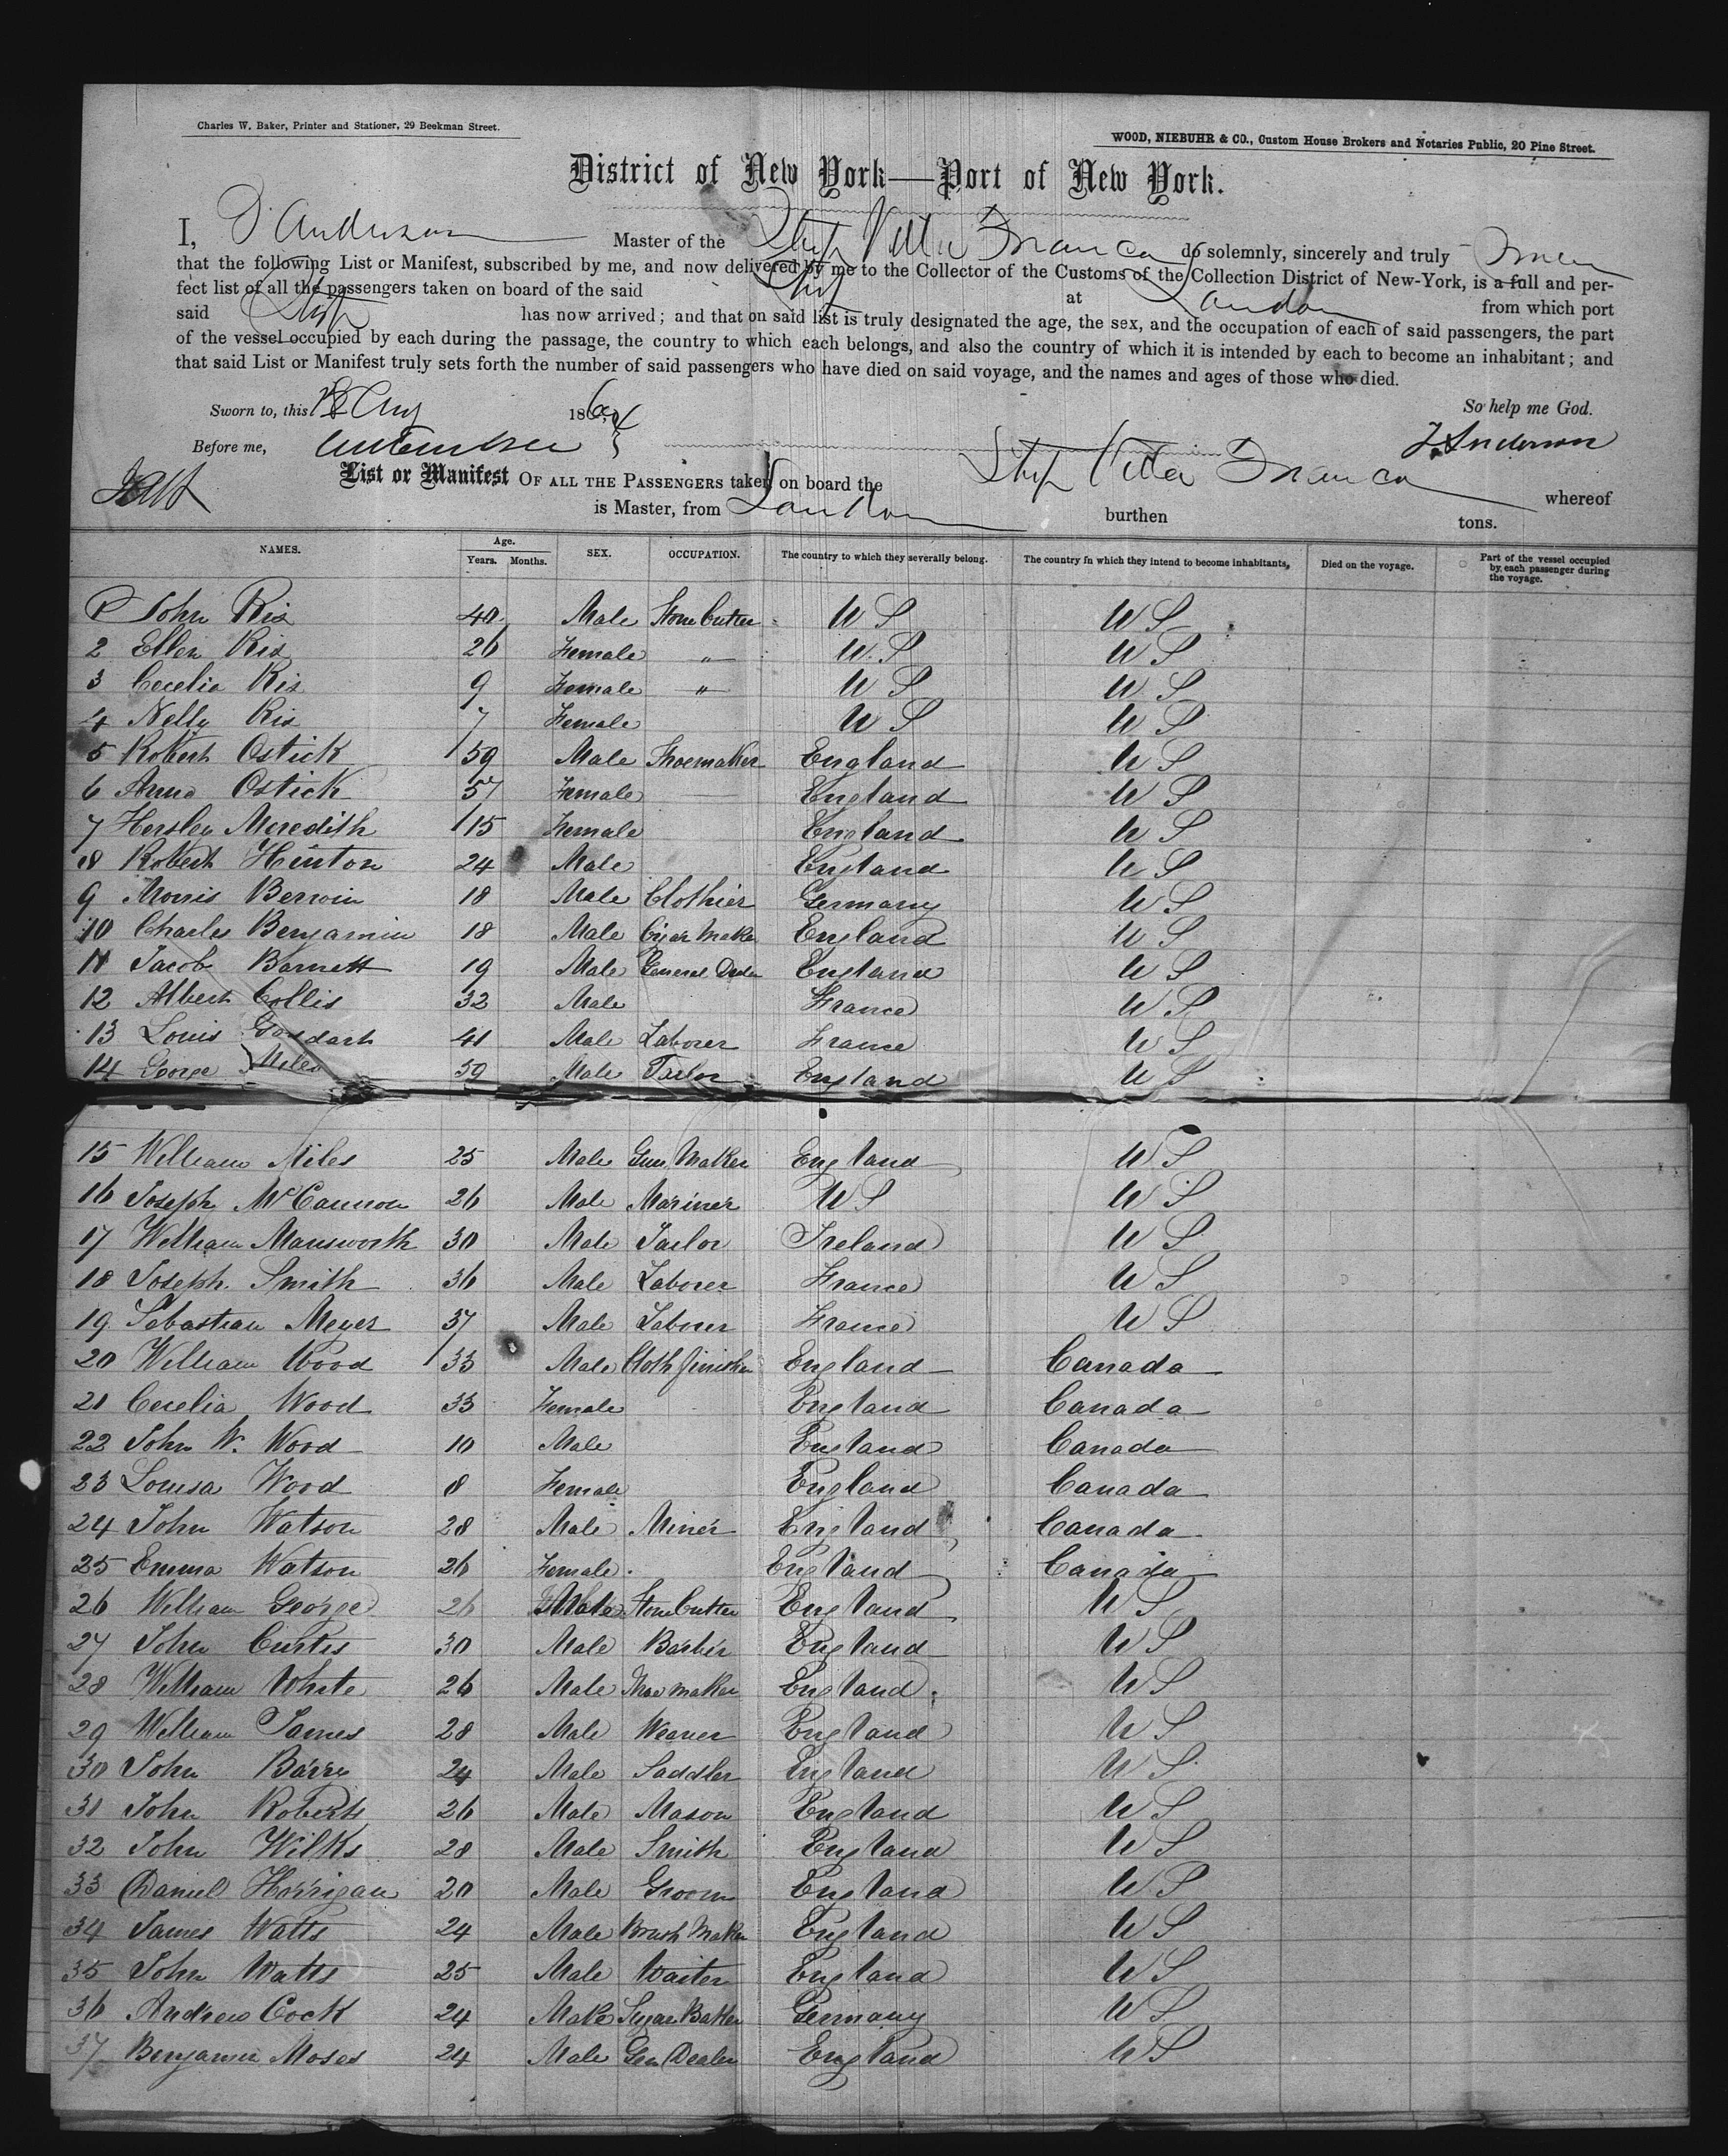 Charles W. Baker, Printer and Stationer, 29 Beekman Street.
WOOD, NIEBUHR & CO., Custom House Brokers and Notaries Public, 20 Pine Street.
District of New York—Port of New York.
I, Anderson Master of the Ship Villa Franca do solemnly, sincerely and truly
that the following List or Manifest, subscribed by me, and now delivered by me to the Collector of the Customs of the Collection District of New-York, is a full and per-
fect list of all the passengers taken on board of the said Ship at London from which port
said Ship has now arrived; and that on said list is truly designated the age, the sex, and the occupation of each of said passengers, the part
of the vessel occupied by each during the passage, the country to which each belongs, and also the country of which it is intended by each to become an inhabitant; and
that said List or Manifest truly sets forth the number of said passengers who have died on said voyage, and the names and ages of those who died.
Sworn to, this Aug 186 So help me God.
Before me, J. Anderson
List or Manifest OF ALL THE PASSENGERS taken on board the Ship Villa Franca whereof
is Master, from London burthen tons.
NAMES. Age. Years. Months. SEX. OCCUPATION. The country to which they severally belong. The country in which they intend to become inhabitants, Died on the voyage. Part of the vessel occupied by each passenger during the voyage.
1 John Rix 40 Male Stone Cutter U S U S
2 Ellen Rix 26 Female " U. S U S
3 Cecelia Rix 9 Female " U S U S
4 Nelly Rix 7 Female U S U S
5 Robert Ostick 59 Male Shoemaker England U S
6 Anna Ostick 57 Female England U S
7 Hersley Meredith 15 Female England U S
8 Robert Hinton 24 Male England U S
9 Morris Berwin 18 Male Clothier Germany U S
10 Charles Benjamin 18 Male Cigar Maker England U S
11 Jacob Barnett 19 Male General Dealer England U S
12 Albert Collis 32 Male France U S
13 Louis Goddart 41 Male Laborer France U S
14 George Miles 59 Male Tailor England U S
15 William Miles 25 Male Gun Maker England U S
16 Joseph McCannon 26 Male Mariner U S U S
17 William Mansworth 30 Male Tailor Ireland U S
18 Joseph Smith 36 Male Laborer France U S
19 Sebastian Meyer 37 Male Laborer France U S
20 William Wood 33 Male Cloth finisher England Canada
21 Cecelia Wood 33 Female England Canada
22 John W. Wood 10 Male England Canada
23 Louisa Wood 8 Female England Canada
24 John Watson 28 Male Miner England Canada
25 Emma Watson 26 Female England Canada
26 William George 26 Male Stone Cutter England U S
27 John Curtis 30 Male Barber England U S
28 William White 26 Male Shoemaker England U S
29 William James 28 Male Weaver England U S
30 John Barry 24 Male Saddler England U S
31 John Roberts 26 Male Mason England U S
32 John Wilks 28 Male Smith England U S
33 Daniel Horrigan 20 Male Groom England U S
34 James Watts 24 Male Brush Maker England U S
35 John Watts 25 Male Waiter England U S
36 Andrew Cock 24 Male Sugar Baker Germany U S
37 Benjamin Moses 24 Male Gen Dealer England U S